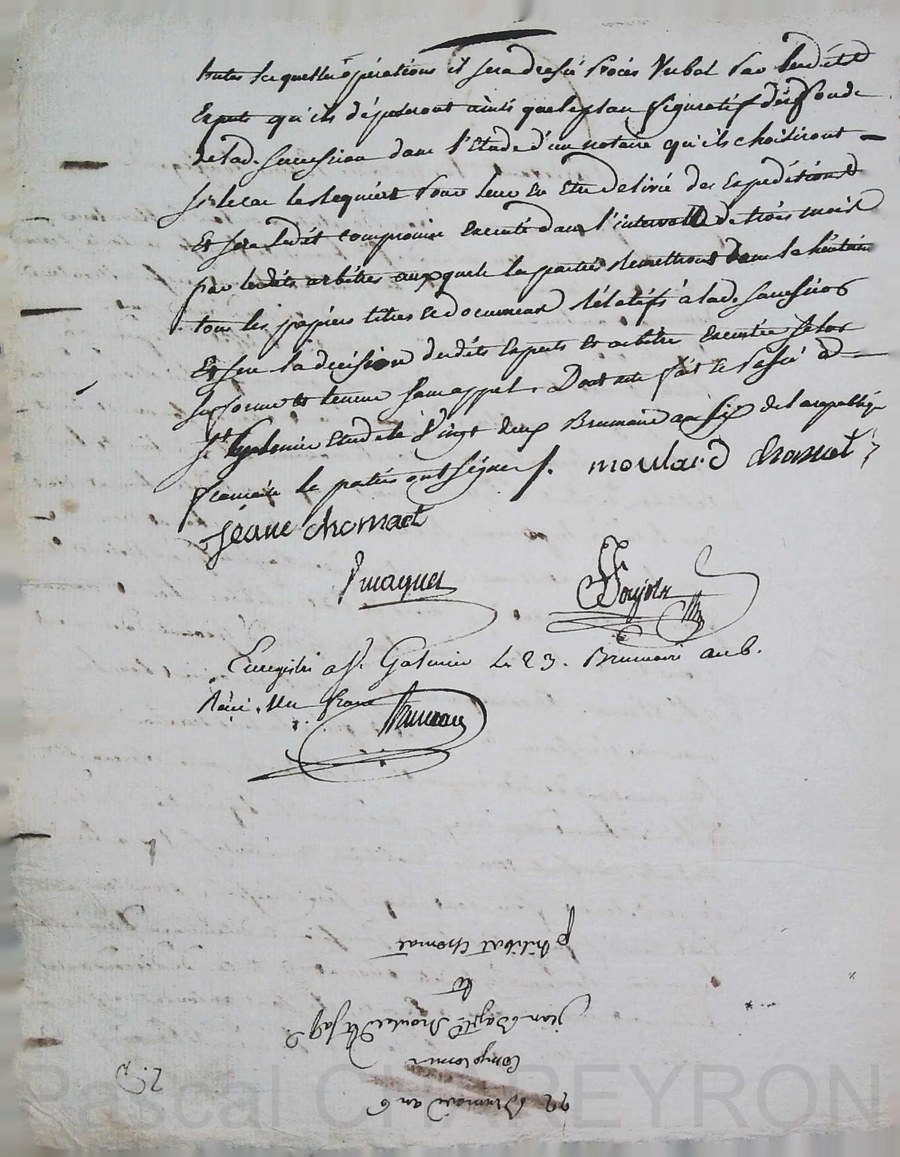 toutes lesquelles opérations il sera dressé Procès Verbal Par lesdits
Experts qu'ils déposeront ainsi que le plan figuratif des fonds
de lad. succession dans l'Etude d'un notaire qu'ils choisiront
si le cas le Requiert Pour leur en etre delivré des Expeditions
Et sera ledit compromis executé dans l'intervalle de trois mois
par lesdits arbitres auxquels les parties Remettront dans la huitaine
tous les papiers titres et documens Rélatifs à lad. succession
Et sera la décision desdits Experts et arbitres executée selon
sa forme et teneur sans appel. Dont acte fait et Passé à
St. Galmier Etude le Vingt deux Brumaire an Six de la republique
francaise les parties ont signé /. moulard chomat
jeane chomaet
Goujon
Enregistré a St. Galmier Le 23. Brumaire an 6.
Reçu. Un franc
philibert chomat
et
jean Bapt.
Compromis
22 Brumaire an 6
Pascal CHAREYRON